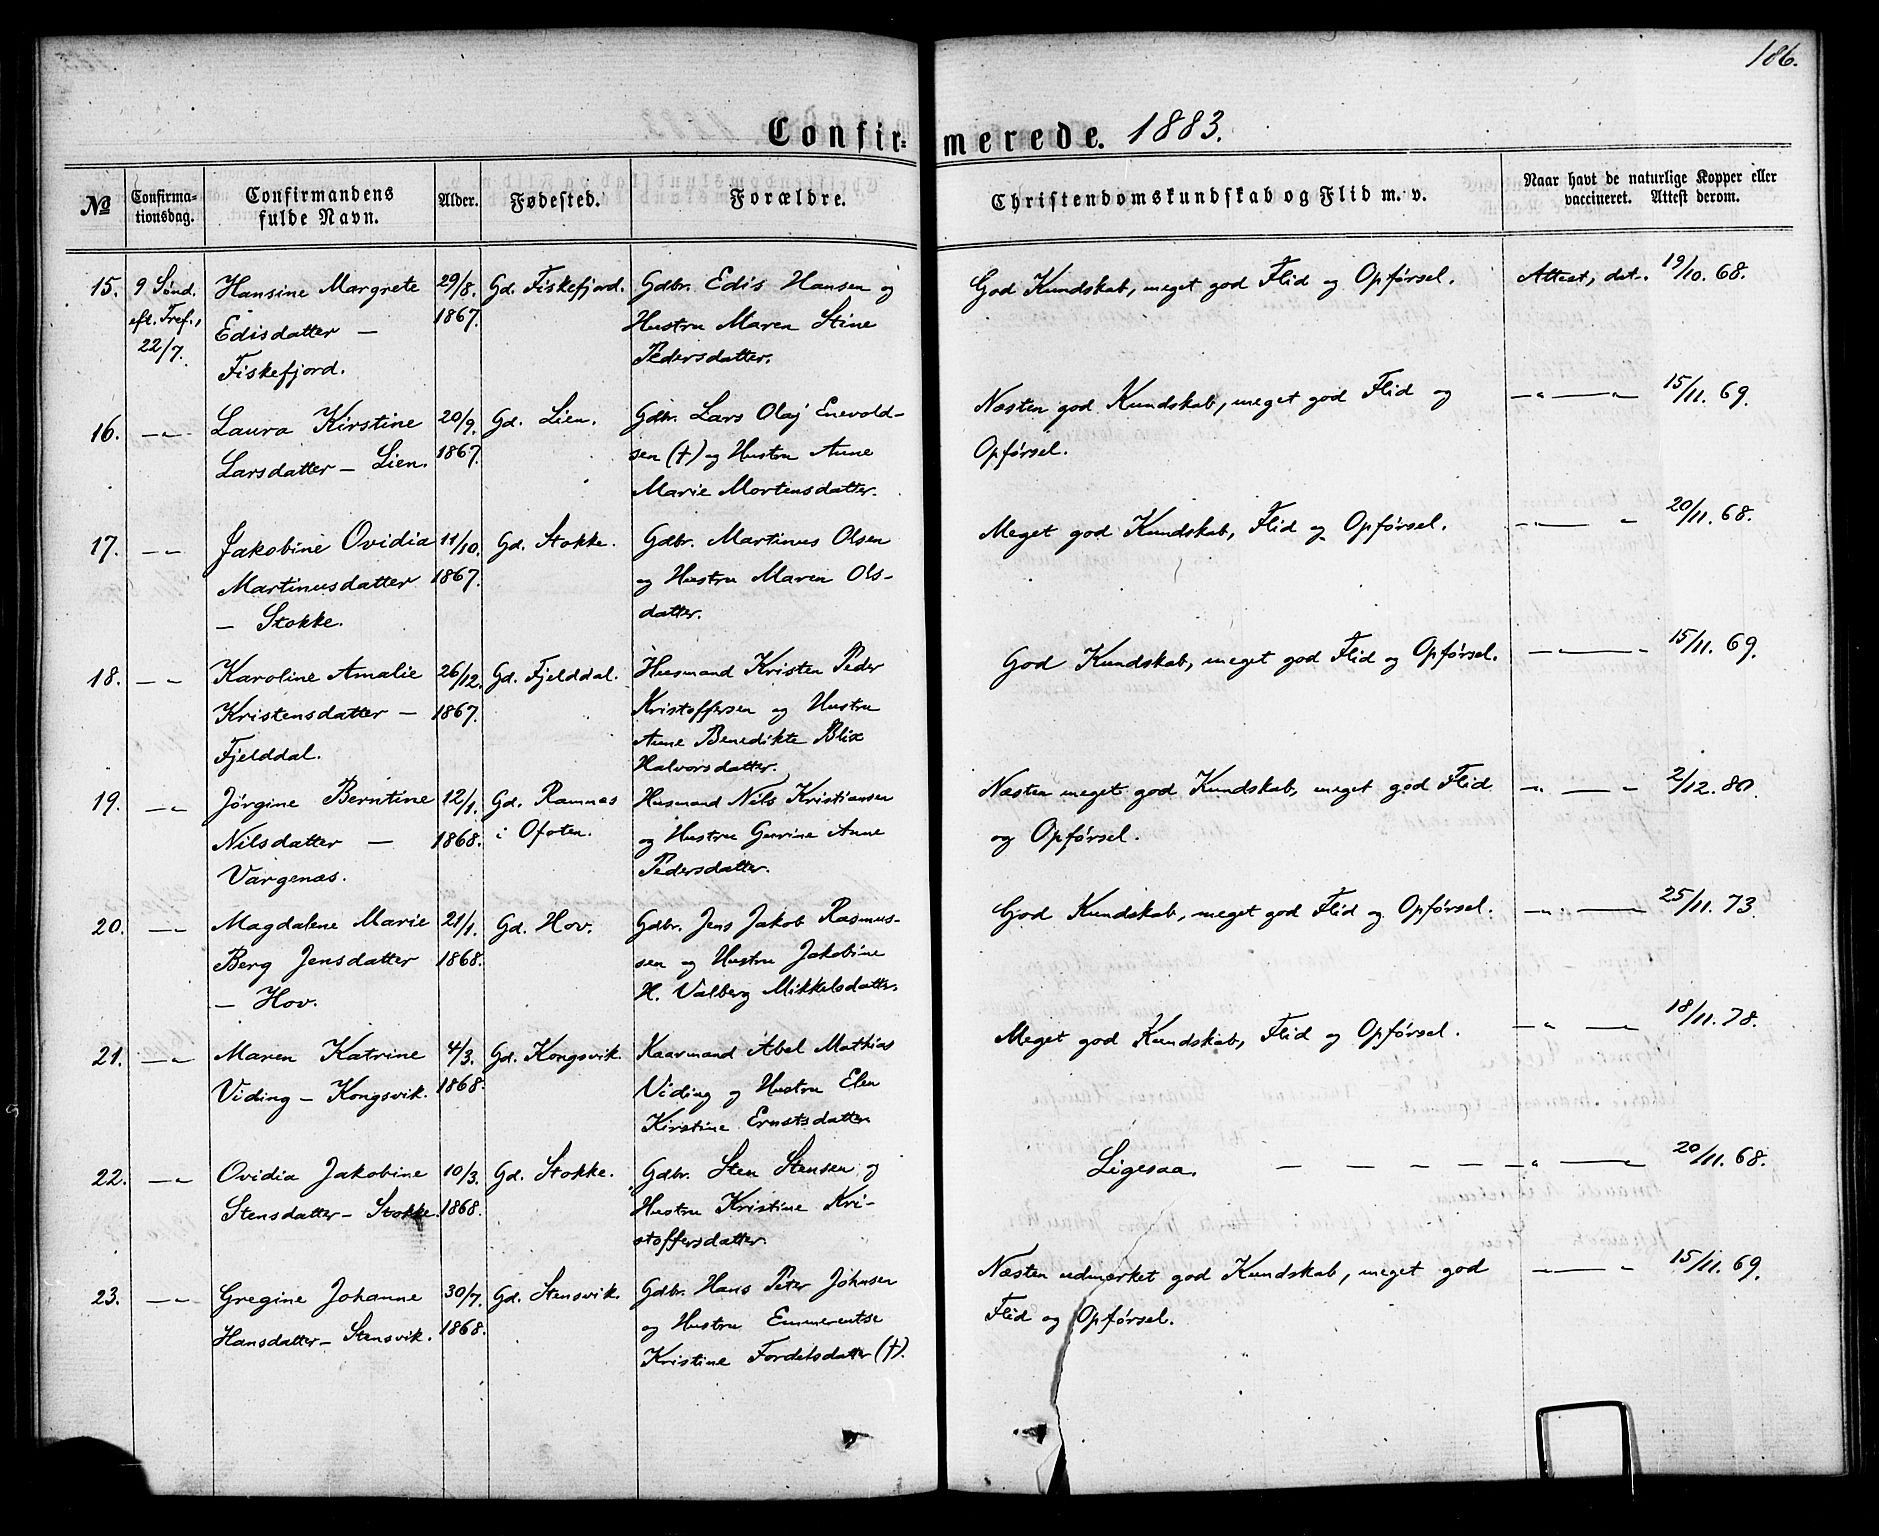 186.
Confir- merede. 1883.
№ Confirma-tionsdag. Confirmandens fulde Navn. Alder. Fødested. Forældre. Christendomskundskab og Flid m. v. Naar havt de naturlige Kopper eller vaccineret. Attest derom.
15. 9 Sønd. Hansine Margrete 29/8. Gd. Fiskefjord. Gdbr. Edis Hansen og God Kundskab, meget god Flid og Opførsel. Attest, dat. 19/10. 68.
eft. Tref., Edisdatter — 1867. Hustru Maren Stine
22/7. Fiskefjord. Pedersdatter.
16. —„— Laura Kirstine 20/9. Gd. Lien. Gdbr. Lars Olaj Enevold- Næsten god Kundskab, meget god Flid og —„—„— 15/11. 69.
Larsdatter — Lien. 1867. sen (†) og Hustru Anne Opførsel.
Marie Mortensdatter.
17. —„— Jakobine Ovidia 11/10. Gd. Stokke. Gdbr. Martinus Olsen Meget god Kundskab, Flid og Opførsel. —„—„— 20/11. 68.
Martinusdatter 1867. og Hustru Maren Ols-
— Stokke. datter.
18. —„— Karoline Amalie 26/12. Gd. Fjelddal. Husmand Kristen Peder God Kundskab, meget god Flid og Opførsel. —„—„— 15/11. 69.
Kristensdatter — 1867. Kristoffersen og Hustru
Fjelddal. Anne Benedikte Blix
Halvorsdatter.
19. —„— Jørgine Berntine 12/1. Gd. Ramnæs Husmand Nils Kristiansen Næsten meget god Kundskab, meget god Flid —„—„— 2/12. 80.
Nilsdatter — 1868. i Ofoten. og Hustru Gurine Anne og Opførsel.
Vargenæs. Pedersdatter.
20. —„— Magdalene Marie 21/1. Gd. Hov. Gdbr. Jens Jakob Rasmus- God Kundskab, meget god Flid og Opførsel. —„—„— 25/11. 73.
Berg Jensdatter 1868. sen og Hustru Jakobine
— Hov. H. Valberg Mikkelsdatter.
21. —„— Maren Katrine 4/3. Gd. Kongsvik. Kaarmand Abel Mathias Meget god Kundskab, Flid og Opførsel. —„—„— 18/11. 78.
Viding — Kongsvik. 1868. Viding og Hustru Elen
Kirstine Ernstsdatter
22. —„— Ovidia Jakobine 10/3. Gd. Stokke. Gdbr. Sten Stensen og Ligesaa. — — — — —„—„— 20/11. 68.
Stensdatter — Stokke. 1868. Hustru Kristine Kri-
stoffersdatter.
23. —„— Gregine Johanne 30/7. Gd. Stensvik. Gdbr. Hans Peter Johnsen Næsten udmærket god Kundskab, meget god —„—„— 15/11. 69.
Hansdatter — Stensvik. 1868. og Hustru Emmerentse Flid og Opførsel.
Kristine Fordelsdatter (†).